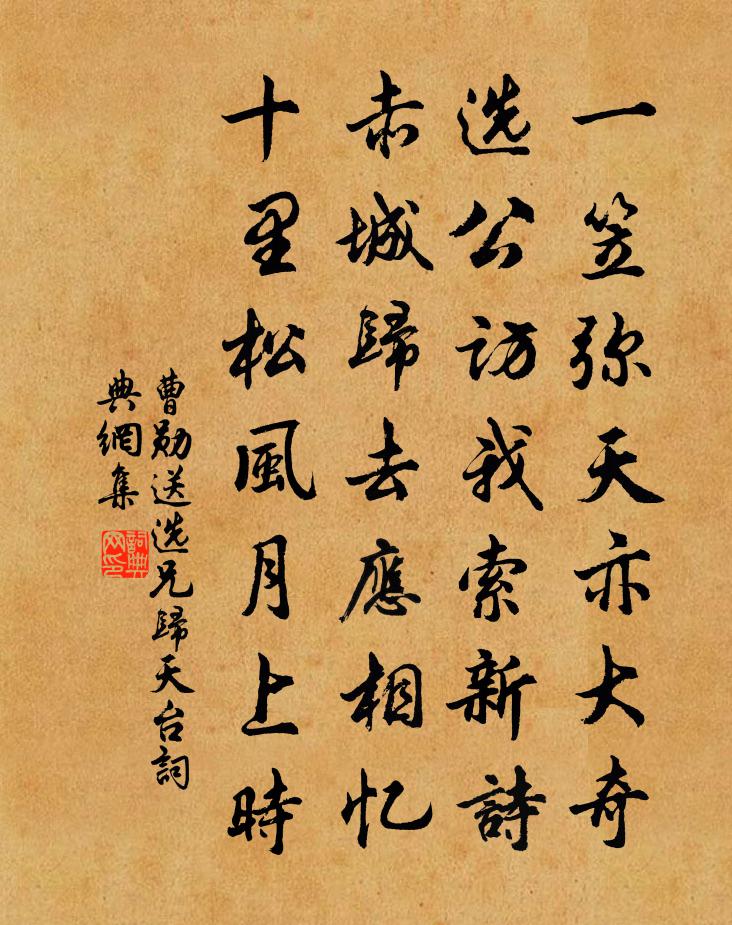 一笠弥天亦大奇
选公访我索新詩
赤城歸去應相忆
十里松風月上時
曹勋送选兄歸天台詞
典網集
詞典网印